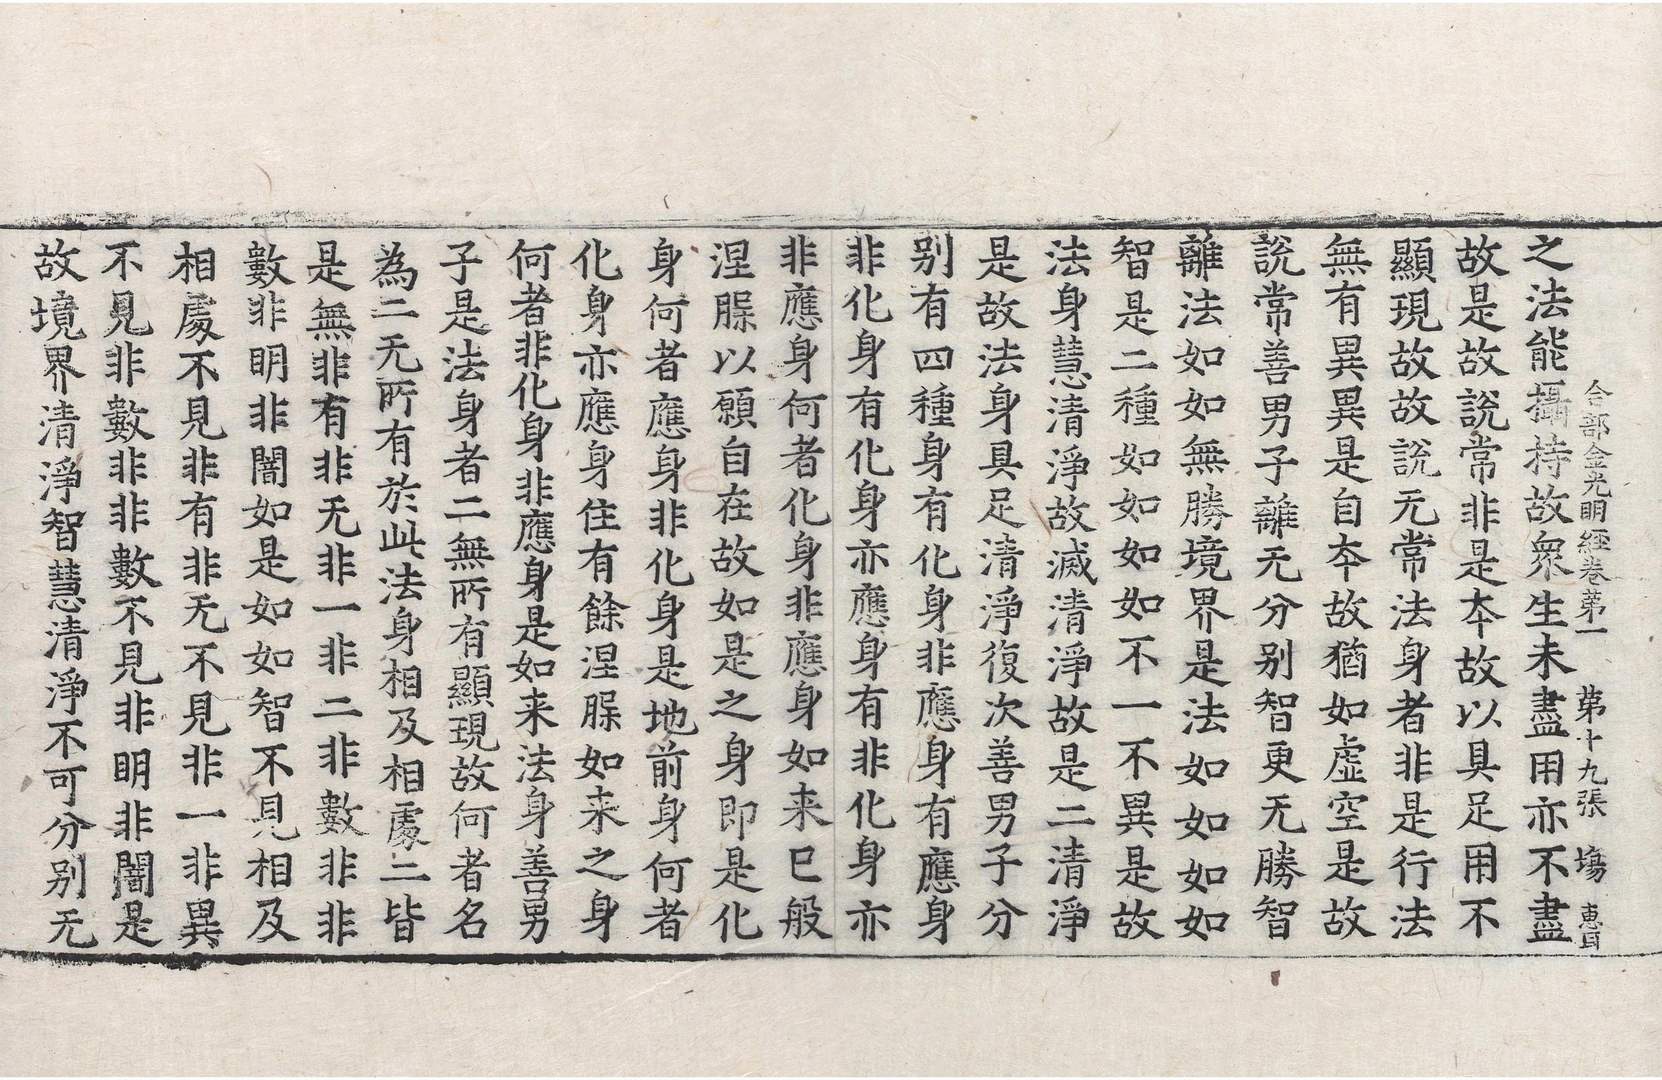 合部金光明經卷第一　第十九張　塲　惠耳
之法能攝持故衆生未盡用亦不盡
故是故說常非是本故以具足用不
顯現故故說无常法身者非是行法
無有異異是自夲故猶如虛空是故
說常善男子離无分别智更无勝智
離法如如無勝境界是法如如如如
智是二種如如如如不一不異是故
法身慧清淨故滅清淨故是二清淨
是故法身具足清淨復次善男子分
别有四種身有化身非應身有應身
非化身有化身亦應身有非化身亦
非應身何者化身非應身如来已般
涅䏶以願自在故如是之身即是化
身何者應身非化身是地前身何者
化身亦應身住有餘涅䏶如来之身
何者非化身非應身是如来法身善男
子是法身者二無所有顯現故何者名
為二无所有於此法身相及相處二皆
是無非有非无非一非二非數非非
數非明非闇如是如如智不見相及
相處不見非有非无不見非一非異
不見非數非非數不見非明非闇是
故境界清淨智慧清淨不可分别无